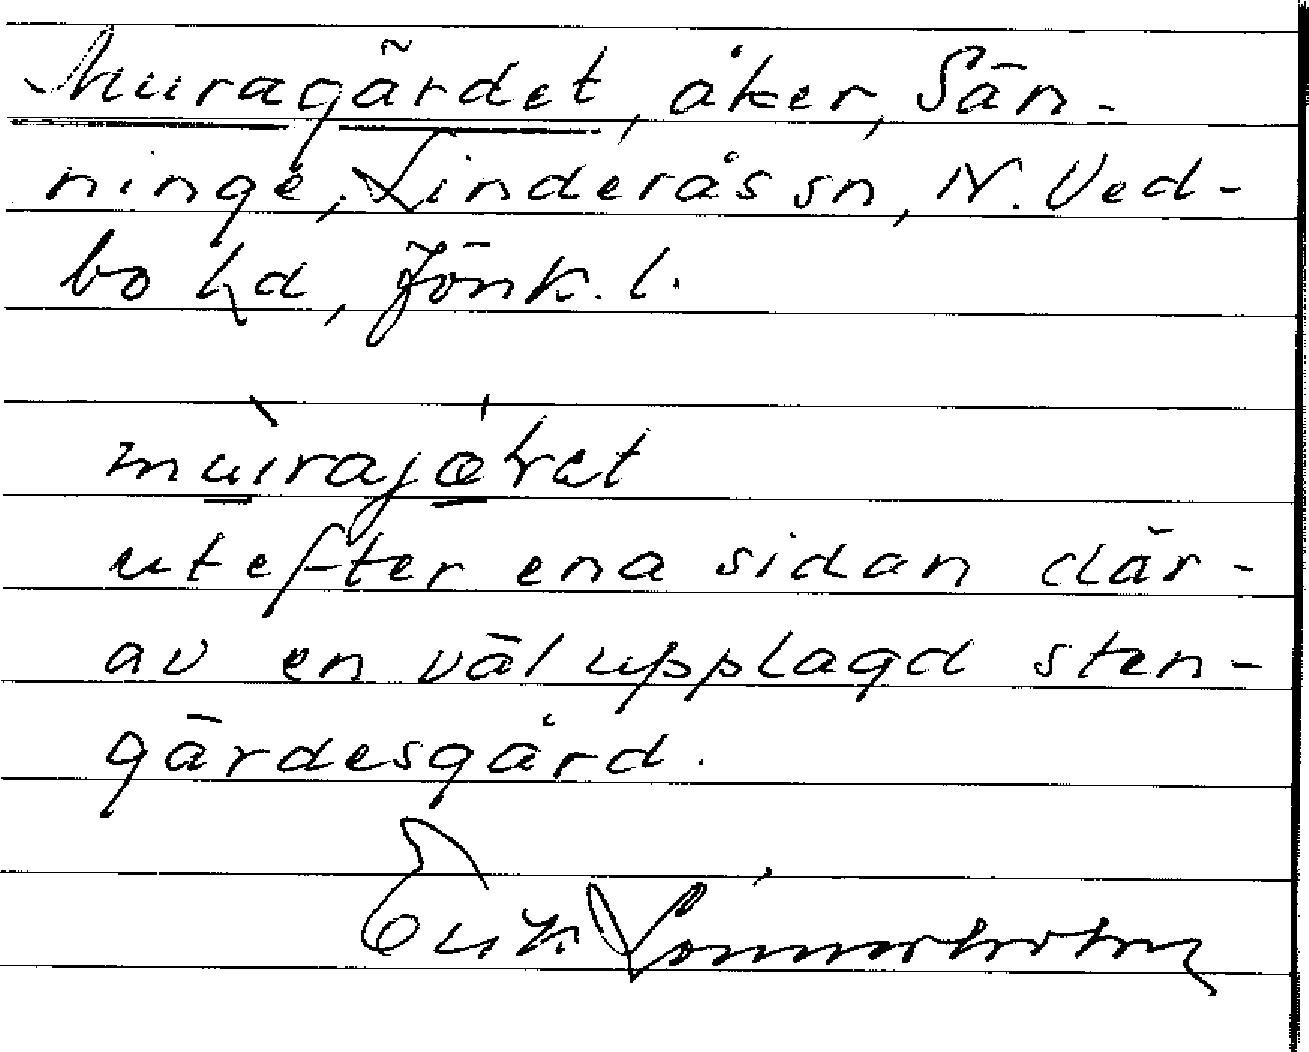 Muragärdet, åker, Sän-
ninge, Linderås sn, N. Ved-
bo hd, Jönk. l.
utefter ena sidan där-
av en väl upplagd sten-
gärdesgård.
Erik